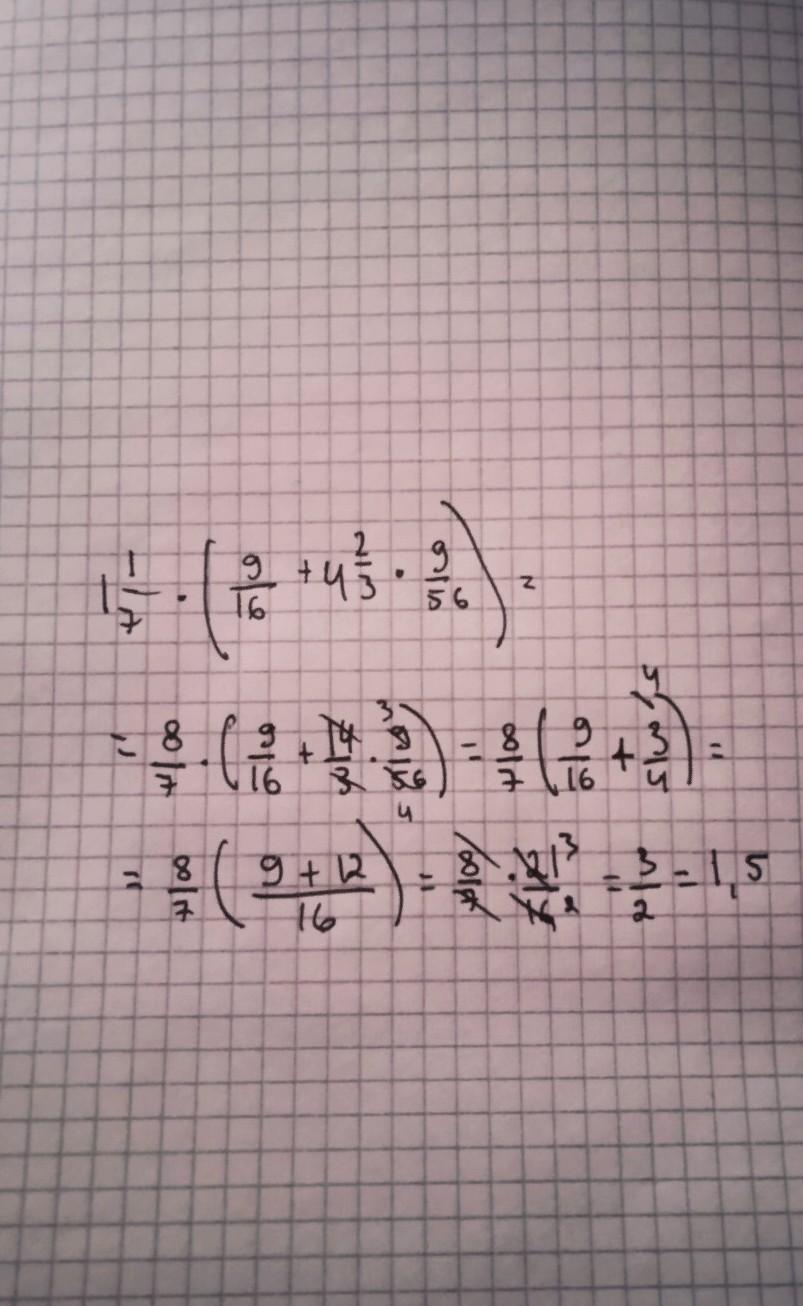 1 1/7 · (9/16 + 4 2/3 · 9/56) =
= 8/7 · (9/16 + 14/3 · 9/56) = 8/7 (9/16 + 3/4) =
= 8/7 ((9 + 12)/16) = 8/7 · 21/16 = 3/2 = 1,5